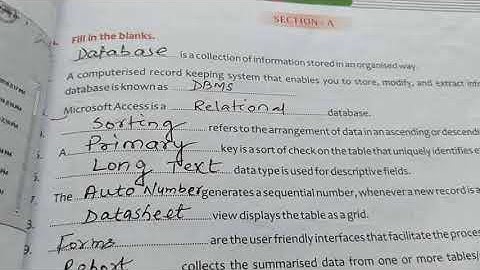 SECTION - A
Fill in the blanks.
Database is a collection of information stored in an organised way.
A computerised record keeping system that enables you to store, modify, and extract
database is known as DBMS
Microsoft Access is a Relational database.
Sorting refers to the arrangement of data in an ascending or
A Primary key is a sort of check on the table that uniquely identifies
Long Text data type is used for descriptive fields.
The Auto Number generates a sequential number, whenever a new record is
Datasheet view displays the table as a grid.
Forms are the user friendly interfaces that facilitate the
Report collects the summarised data from one or more tables/